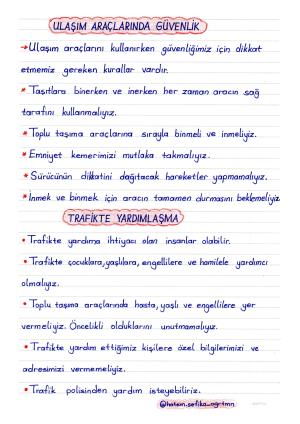 ULAŞIM ARAÇLARINDA GÜVENLİK
→Ulaşım araçlarını kullanırken güvenliğimiz için dikkat
etmemiz gereken kurallar vardır.
* Taşıtlara binerken ve inerken her zaman aracın sağ
tarafını kullanmalıyız.
* Toplu taşıma araçlarına sırayla binmeli ve inmeliyiz.
* Emniyet kemerimizi mutlaka takmalıyız.
* Sürücünün dikkatini dağıtacak hareketler yapmamalıyız.
* İnmek ve binmek için aracın tamamen durmasını beklemeliyiz.
TRAFİKTE YARDIMLAŞMA
• Trafikte yardıma ihtiyacı olan insanlar olabilir.
• Trafikte çocuklara, yaşlılara, engellilere ve hamilele yardımcı
olmalıyız.
• Toplu taşıma araçlarında hasta, yaşlı ve engellilere yer
vermeliyiz. Öncelikli olduklarını unutmamalıyız.
• Trafikte yardım ettiğimiz kişilere özel bilgilerimizi ve
adresimizi vermemeliyiz.
• Trafik polisinden yardım isteyebiliriz.